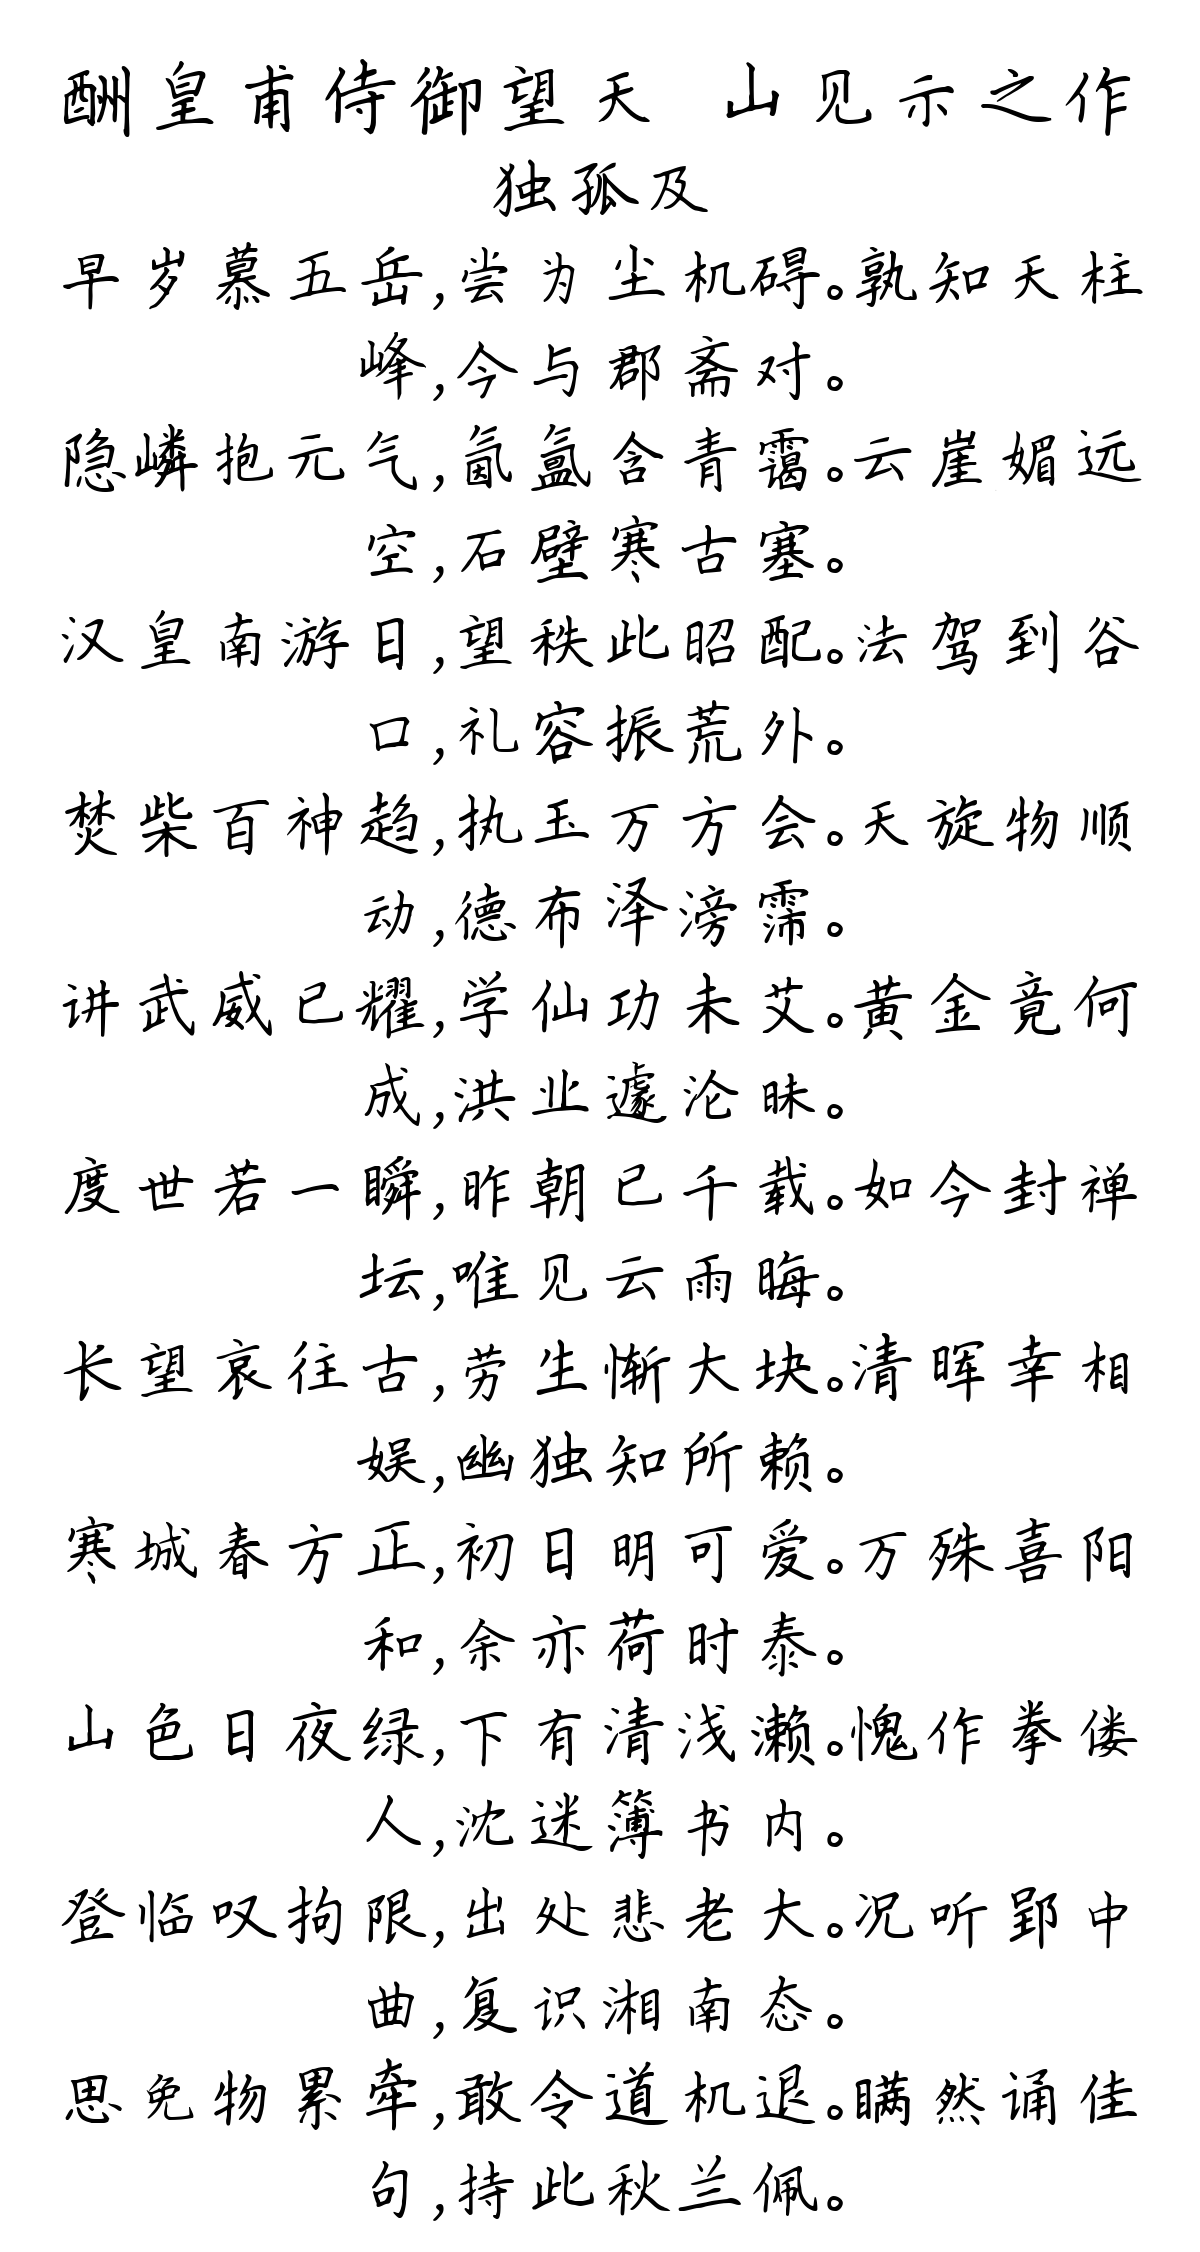 酬皇甫侍御望天 山见示之作
独孤及
早岁慕五岳,尝为尘机碍。孰知天柱
峰,今与郡斋对。
隐嶙抱元气,氤氲含青霭。云崖媚远
空,石壁寒古塞。
汉皇南游日,望秩此昭配。法驾到谷
口,礼容振荒外。
焚柴百神趋,执玉万方会。天旋物顺
动,德布泽滂霈。
讲武威已耀,学仙功未艾。黄金竟何
成,洪业遽沦昧。
度世若一瞬,昨朝已千载。如今封禅
坛,唯见云雨晦。
长望哀往古,劳生惭大块。清晖幸相
娱,幽独知所赖。
寒城春方正,初日明可爱。万殊喜阳
和,余亦荷时泰。
山色日夜绿,下有清浅濑。愧作拳偻
人,沈迷簿书内。
登临叹拘限,出处悲老大。况听郢中
曲,复识湘南态。
思免物累牵,敢令道机退。瞒然诵佳
句,持此秋兰佩。